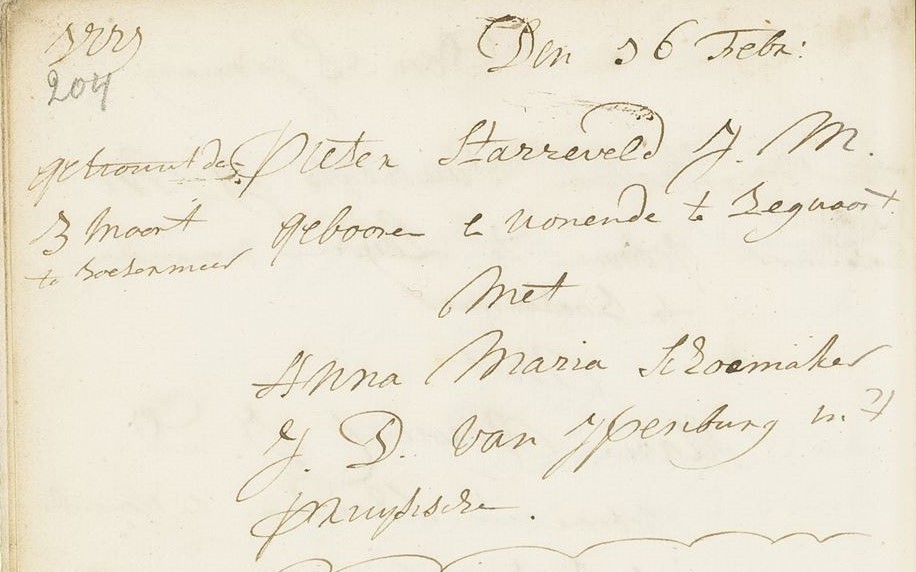 1771
204
Den 16 Febr:
getrouwt de
3 Maart
te Soetermeer
Pieter Starreveld J. M.
gebooren & wonende te Zegwaart
Met
Anna Maria Schoemaker
J. D. van Ysenburg in 't
Pruysische.